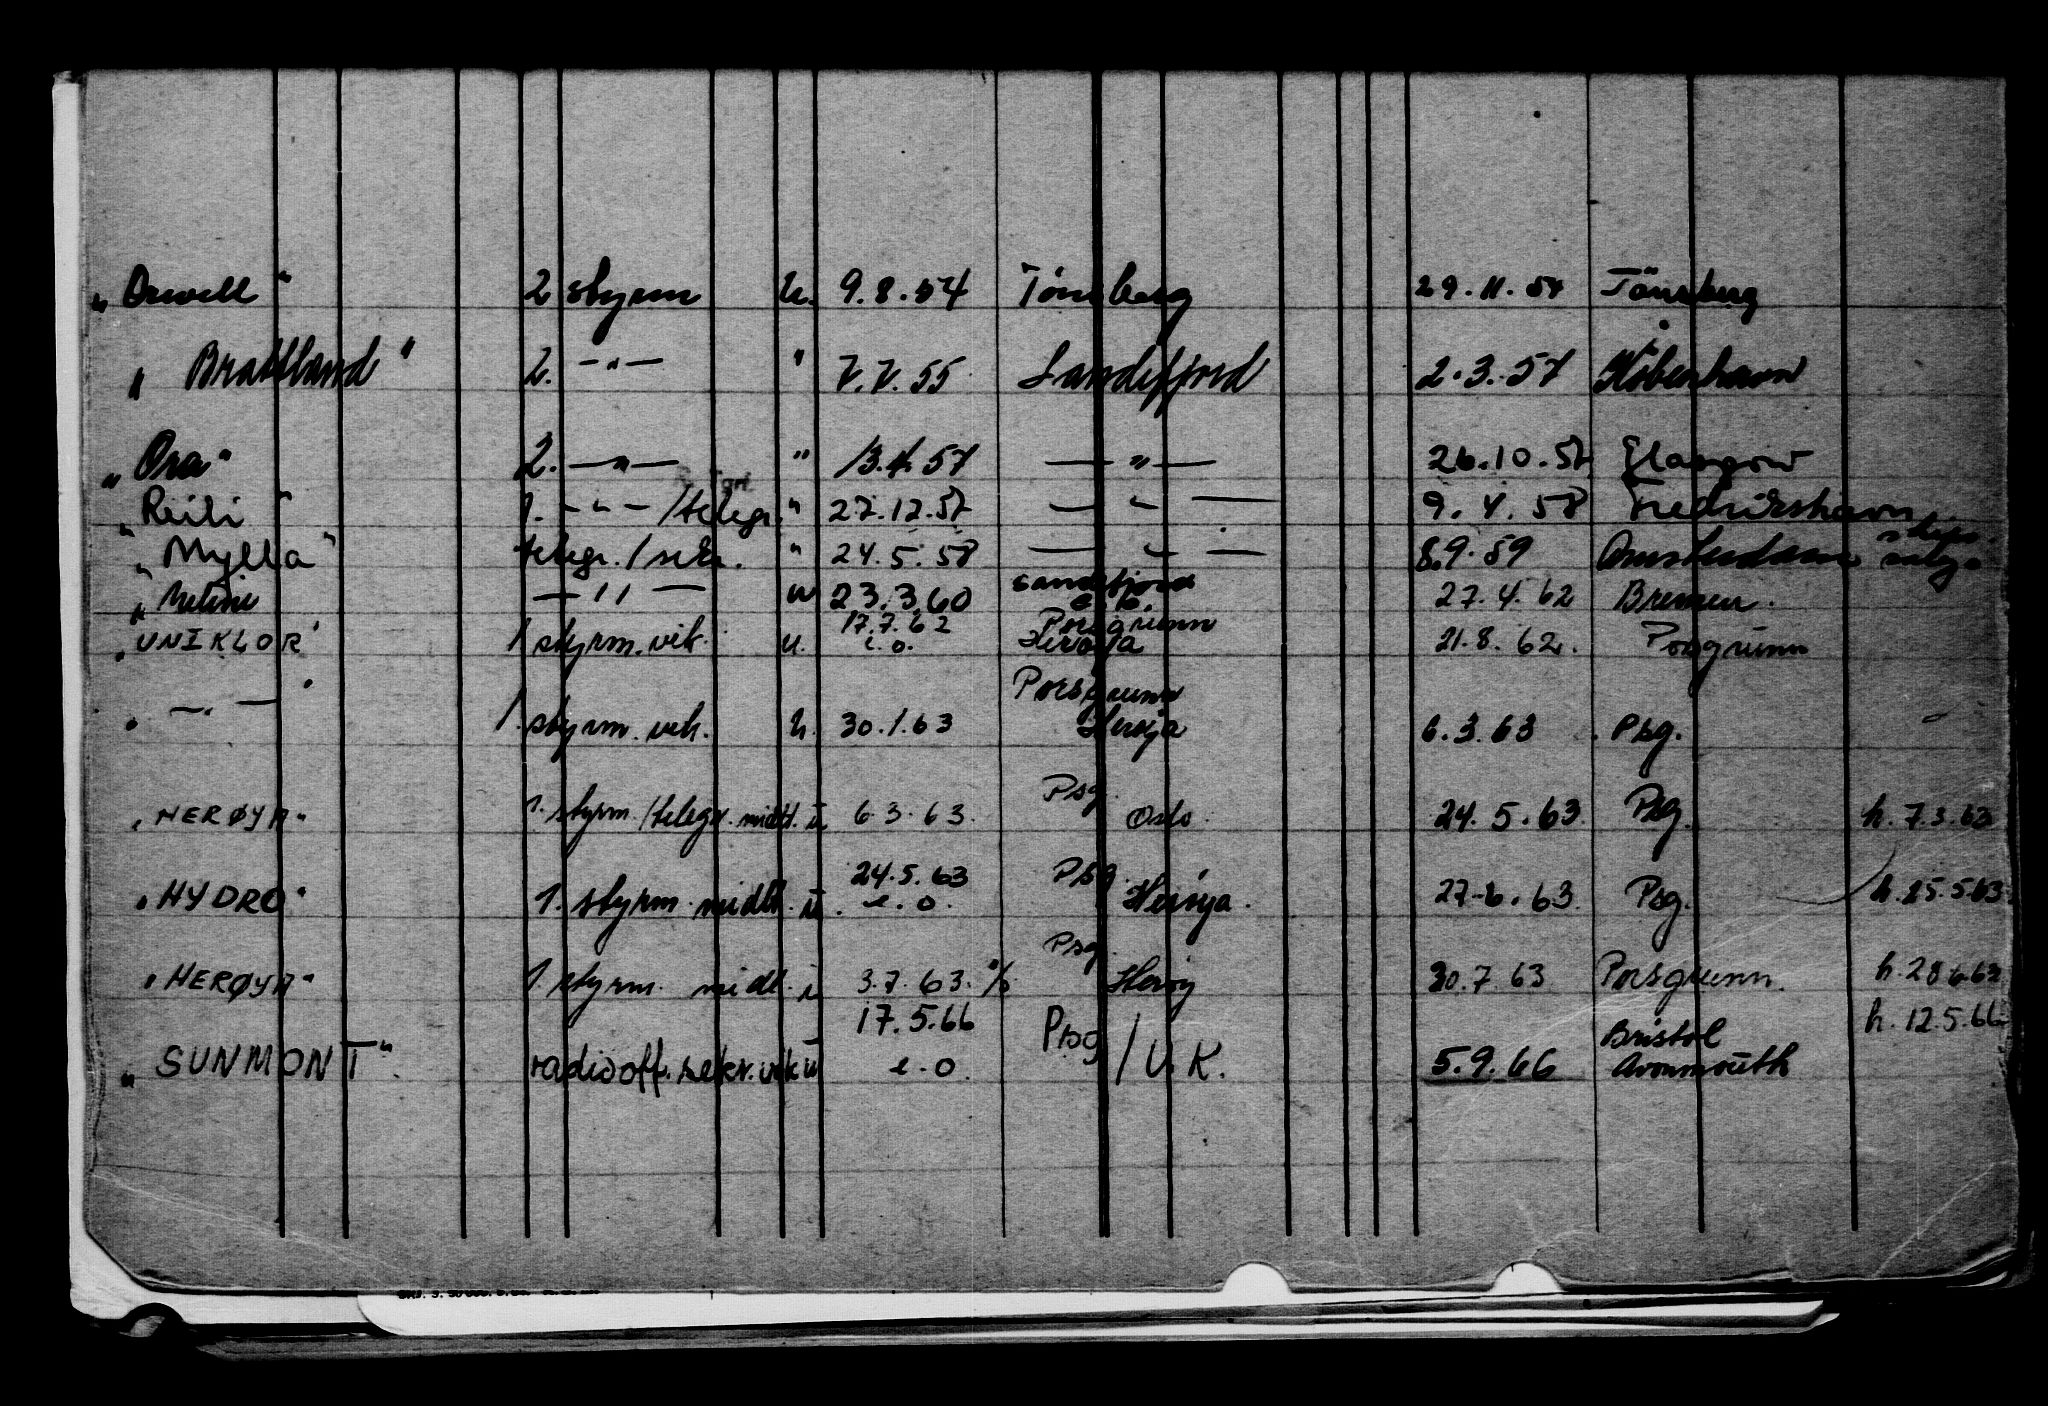 „ Orwell " 2 styrm u. 9.8.54 Tönsberg 29.11.54 Tönsberg
„ Brattland " 2. —"— " 7.7.55 Sandefjord 2.3.57 København
„ Ora " 2. —"— " 13.4.57 —"— 26.10.57 Glasgow
„ Reili " 1. —"— /telegr. " 27.12.57 —"— 9.4.58 Fredrikshavn
„ Mylla " telegr./sekr. " 24.5.58 —"— 8.9.59 Amsterdam skips. salg.
„ —"— 23.3.60 Sandefjord e.o. 27.4.62 Bremen.
„ UNIKLOR " 1 styrm. vik. u. 17.7.62 e.o. Porsgrunn Herøya 21.8.62. Porsgrunn
„ —"— " 1. styrm. vik. u. 30.1.63 Porsgrunn Herøja 6.3.63 Psg.
„ HERØYA " 1. styrm./telegr. midl. u 6.3.63. Psg. Oslo. 24.5.63 Psg. h. 7.3.63
„ HYDRO " 1. styrm. midl. u. 24.5.63 e.o. Psg. Herøya. 27.6.63. Psg. h. 25.5.63
„ HERØYA " 1 styrm. midl. u 3.7.63. Psg. Herøy 30.7.63 Porsgrunn. h. 28.6.63
„ SUNMONT " radiooff. sekr. vik u 17.5.66 e.o Psg / U.K. 5.9.66 Bristol Avonmouth h. 12.5.66